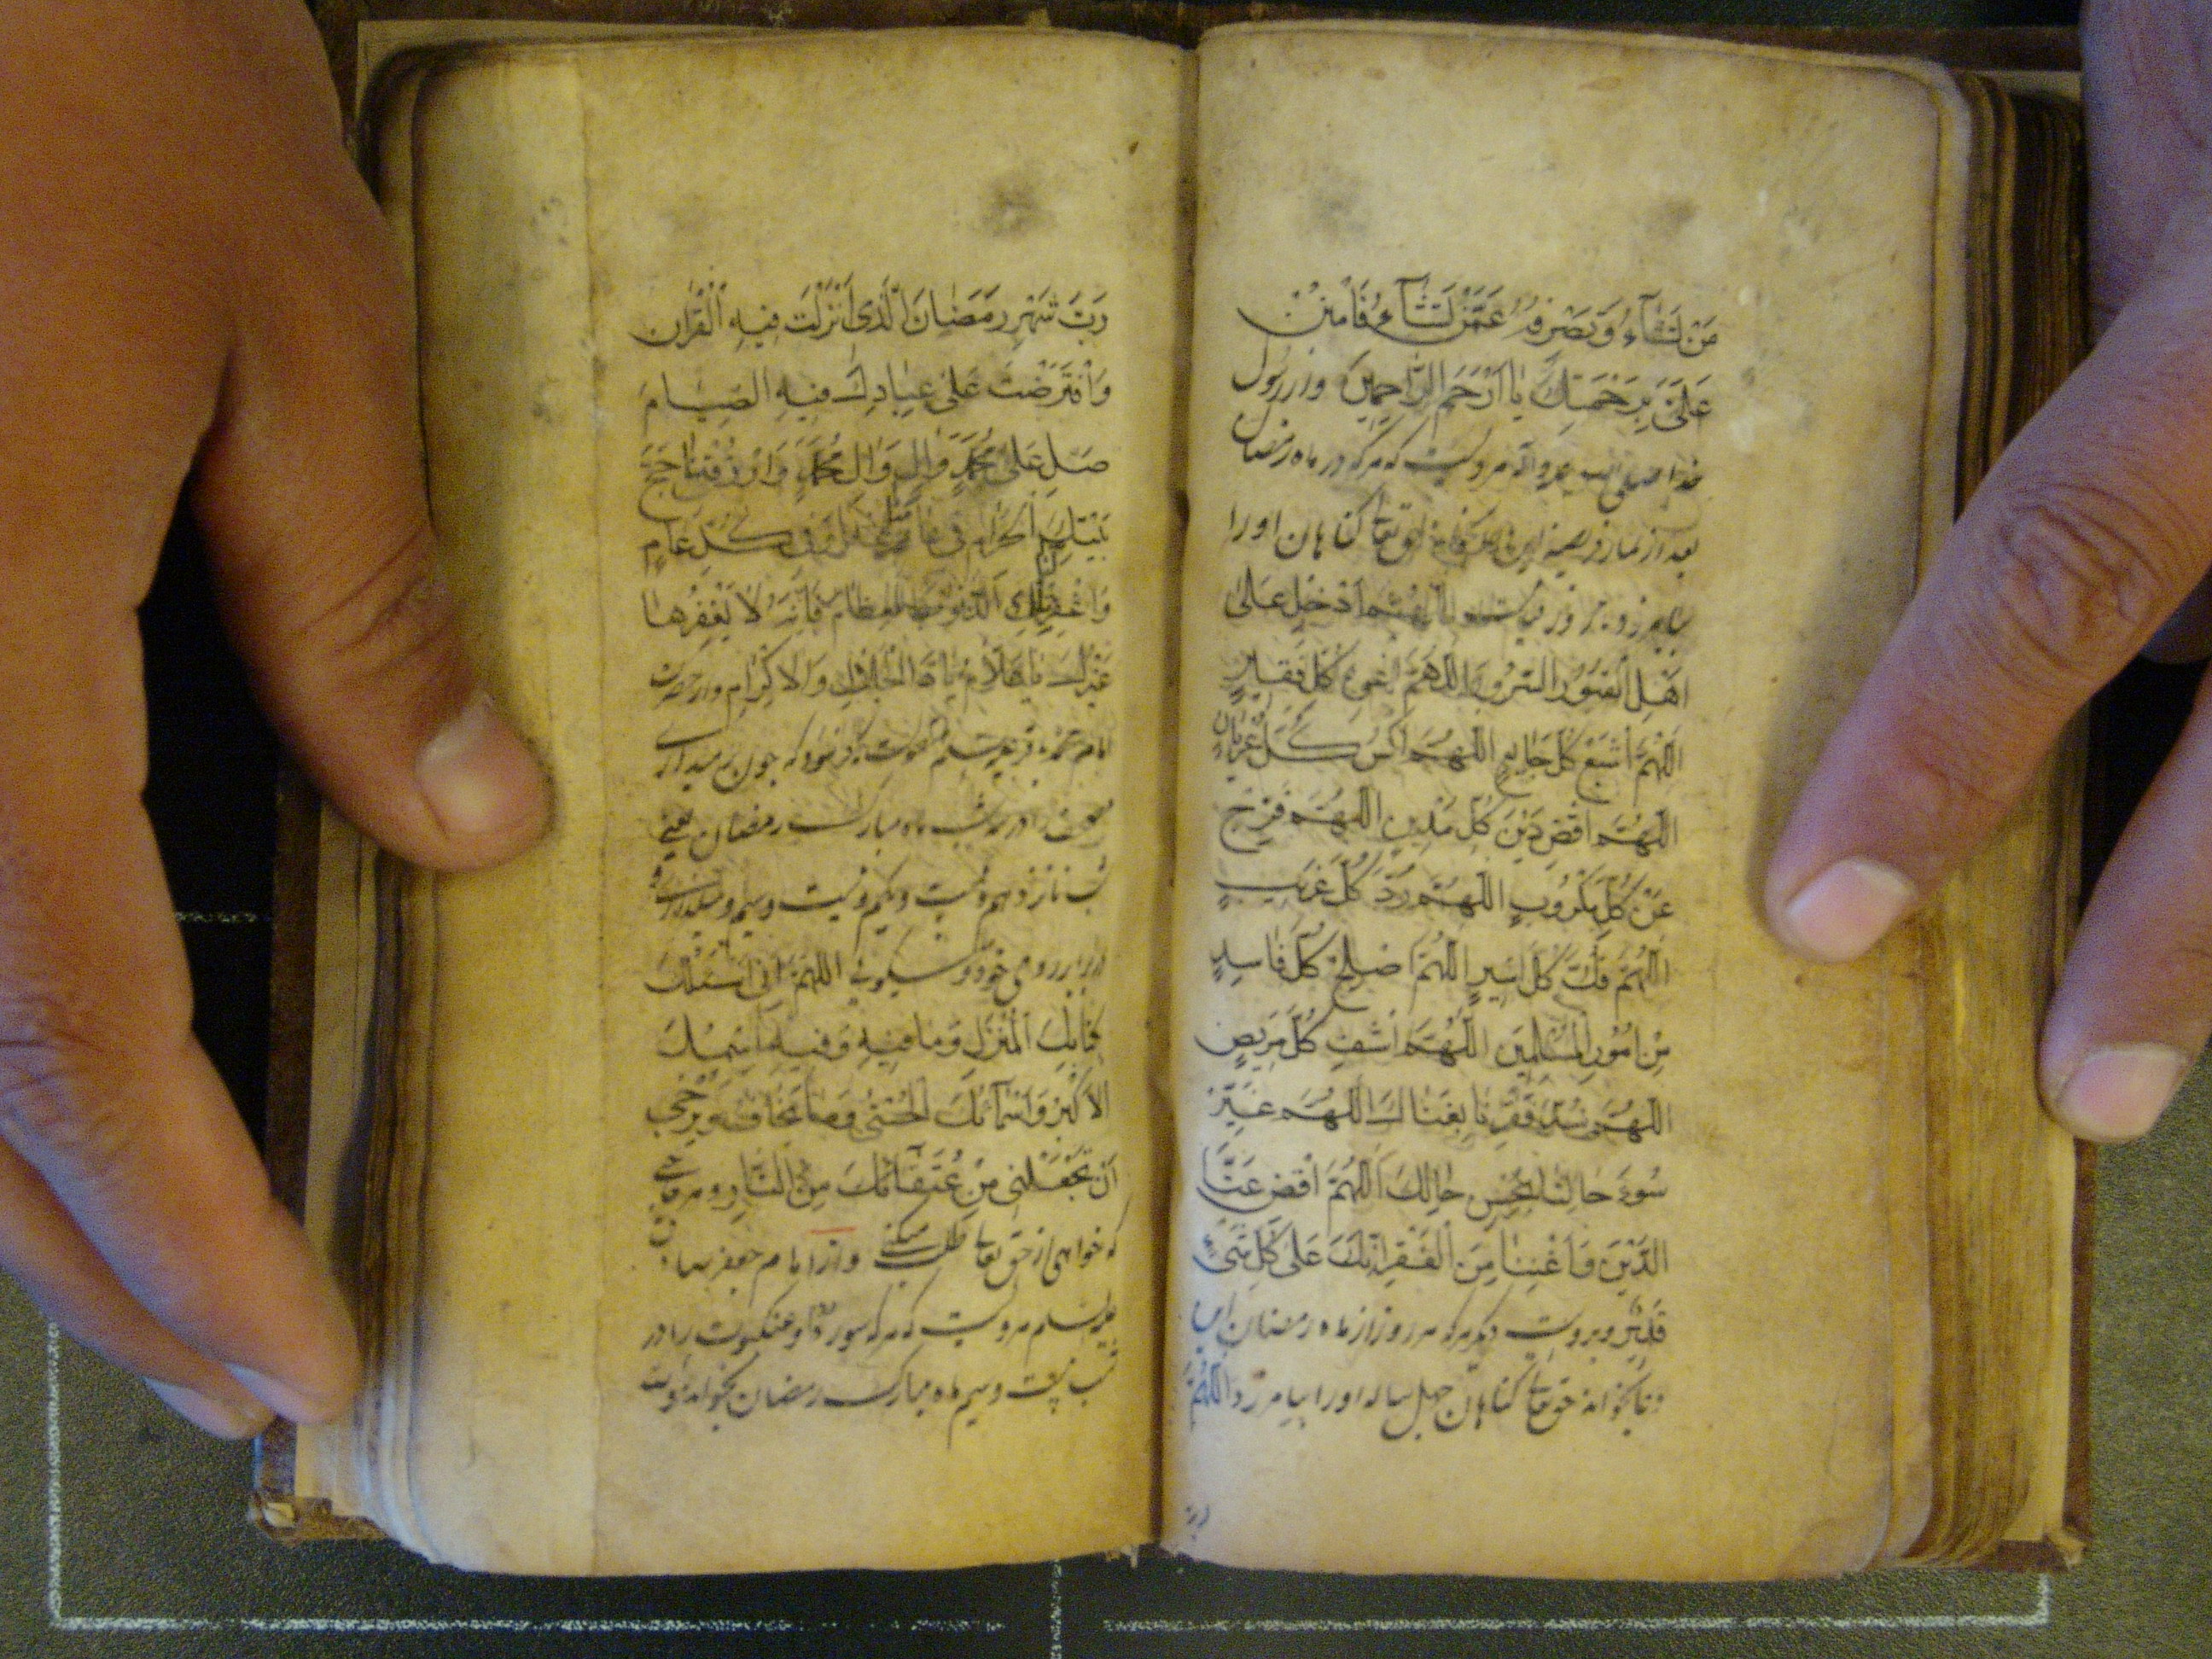 مَنْ تَشَاءُ وَتَصْرِفُهُ عَمَّنْ تَشَاءُ فَامْنُنْ
عَلَيَّ بِرَحْمَتِكَ يَا اَرْحَمَ الرَّاحِمِينَ واز رسول
خدا صلی الله علیه وآله مرویست که هر که در ماه رمضان
بعد از نماز فریضه این دعا بخواند حق تعالی گناهان او را
بیامرزد اللّهُمَّ اَدْخِلْ عَلٰی
اَهْلِ الْقُبُورِ السُّرُورَ اَللّٰهُمَّ اَغْنِ كُلَّ فَقِيرٍ
اَللّٰهُمَّ اَشْبِعْ كُلَّ جَايِعٍ اَللّٰهُمَّ اكْسُ كُلَّ عُرْيَانٍ
اَللّٰهُمَّ اقْضِ دَيْنَ كُلِّ مَدِينٍ اَللّٰهُمَّ فَرِّجْ
عَنْ كُلِّ مَكْرُوبٍ اَللّٰهُمَّ رُدَّ كُلَّ غَرِيبٍ
اَللّٰهُمَّ فُكَّ كُلَّ اَسِيرٍ اَللّٰهُمَّ اَصْلِحْ كُلَّ فَاسِدٍ
مِنْ اُمُورِ الْمُسْلِمِينَ اَللّٰهُمَّ اشْفِ كُلَّ مَرِيضٍ
اَللّٰهُمَّ سُدَّ فَقْرَنَا بِغِنَاكَ اَللّٰهُمَّ غَيِّرْ
سُوءَ حَالِنَا بِحُسْنِ حَالِكَ اَللّٰهُمَّ اقْضِ عَنَّا
الدَّيْنَ وَاَغْنِنَا مِنَ الْفَقْرِ اِنَّكَ عَلٰى كُلِّ شَىْءٍ
قَدِيرٌ وبروایت دیگر هر که هر روز از ماه رمضان این
دعا بخواند حق تعالی گناهان چهل ساله او را بیامرزد اَللّٰهُمَّ
رب
رَبَّ شَهْرِ رَمَضَانَ الَّذِى اَنْزَلْتَ فِيهِ الْقُرْاٰنَ
وَافْتَرَضْتَ عَلٰى عِبَادِكَ فِيهِ الصِّيَامَ
صَلِّ عَلٰى مُحَمَّدٍ وَاٰلِ وَاٰلِ مُحَمَّدٍ وَارْزُقْنِى حَجَّ
بَيْتِكَ الْحَرَامِ فِى عَامِى هٰذَا وَفِى كُلِّ عَامٍ
وَاغْفِرْ لِىَ الذُّنُوبَ الْعِظَامَ فَاِنَّهُ لَا يَغْفِرُهَا
غَيْرُكَ يَا عَلَّامُ يَا ذَا الْجَلَالِ وَالْاِكْرَامِ واز حضرت
امام محمد باقر علیه السلم که فرمود که چون
مصحف را در سه شب ماه مبارک رمضان یعنی
شب نانزدهم وبیست ویکم وبیست وسیم
در برابر روی خود ومیگوئی اللّٰهُمَّ اِنِّى اَسْئَلُكَ
بِكِتَابِكَ الْمُنْزَلِ وَمَا فِيهِ وَفِيهِ اسْمُكَ
الْاَكْبَرُ وَاَسْمَائُكَ الْحُسْنٰى وَمَا يُخَافُ وَيُرْجٰى
اَنْ تَجْعَلَنِى مِنْ عُتَقَائِكَ مِنَ النَّارِ وهر حاجتی
که خواهی از حق تعالی طلب میکنی واز امام جعفر صادق
علیه السلم مرویست که هر که سوره روم وعنکبوت را در
شب بیست وسیم ماه مبارک رمضان بخواند